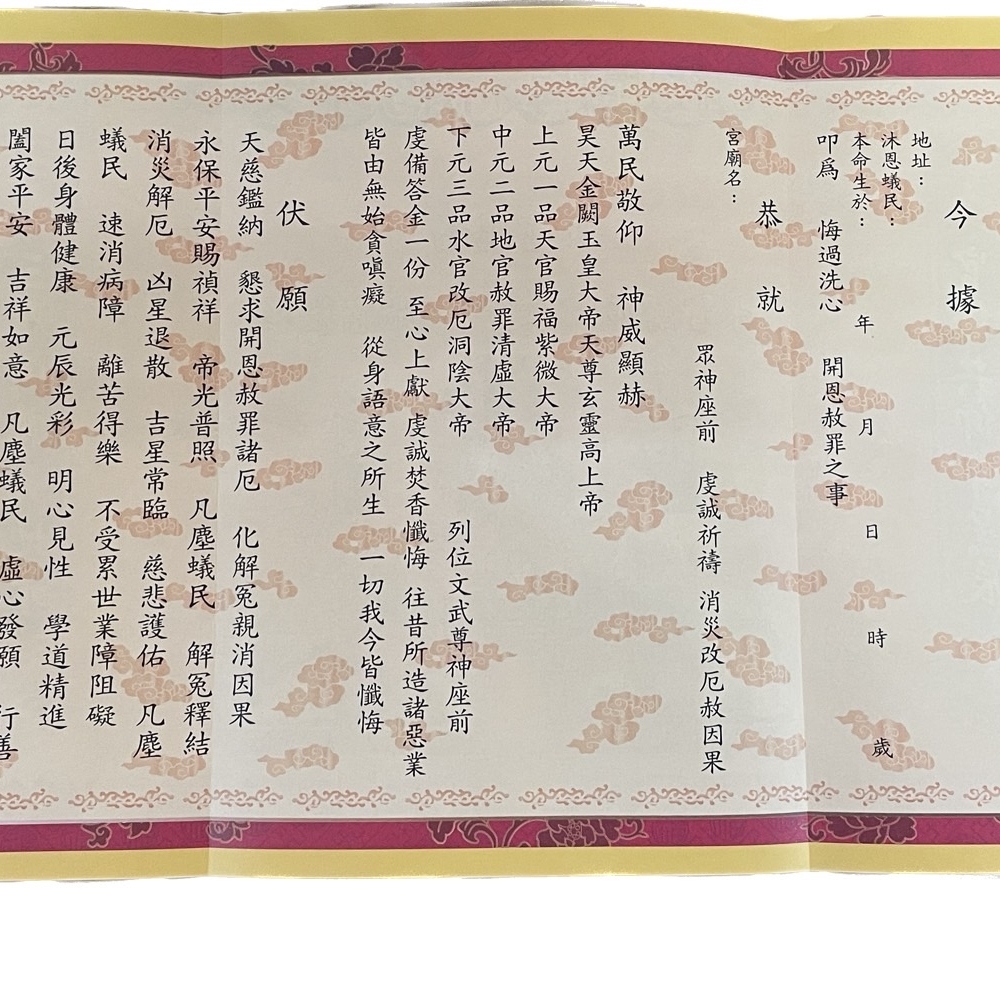 今據
地址：
沐恩蟻民：
本命生於： 年 月 日 時 歲
叩為 悔過洗心 開恩赦罪之事
恭就
宮廟名：
眾神座前 虔誠祈禱 消災改厄赦因果
萬民敬仰 神威顯赫
昊天金闕玉皇大帝天尊玄靈高上帝
上元一品天官賜福紫微大帝
中元二品地官赦罪清虛大帝
下元三品水官改厄洞陰大帝 列位文武尊神座前
虔備答金一份 至心上獻 虔誠焚香懺悔 往昔所造諸惡業
皆由無始貪嗔癡 從身語意之所生 一切我今皆懺悔
伏願
天慈鑑納 懇求開恩赦罪諸厄 化解冤親消因果
永保平安賜禎祥 帝光普照 凡塵蟻民 解冤釋結
消災解厄 凶星退散 吉星常臨 慈悲護佑 凡塵
蟻民 速消病障 離苦得樂 不受累世業障阻礙
日後身體健康 元辰光彩 明心見性 學道精進
闔家平安 吉祥如意 凡塵蟻民 虛心發願 行善